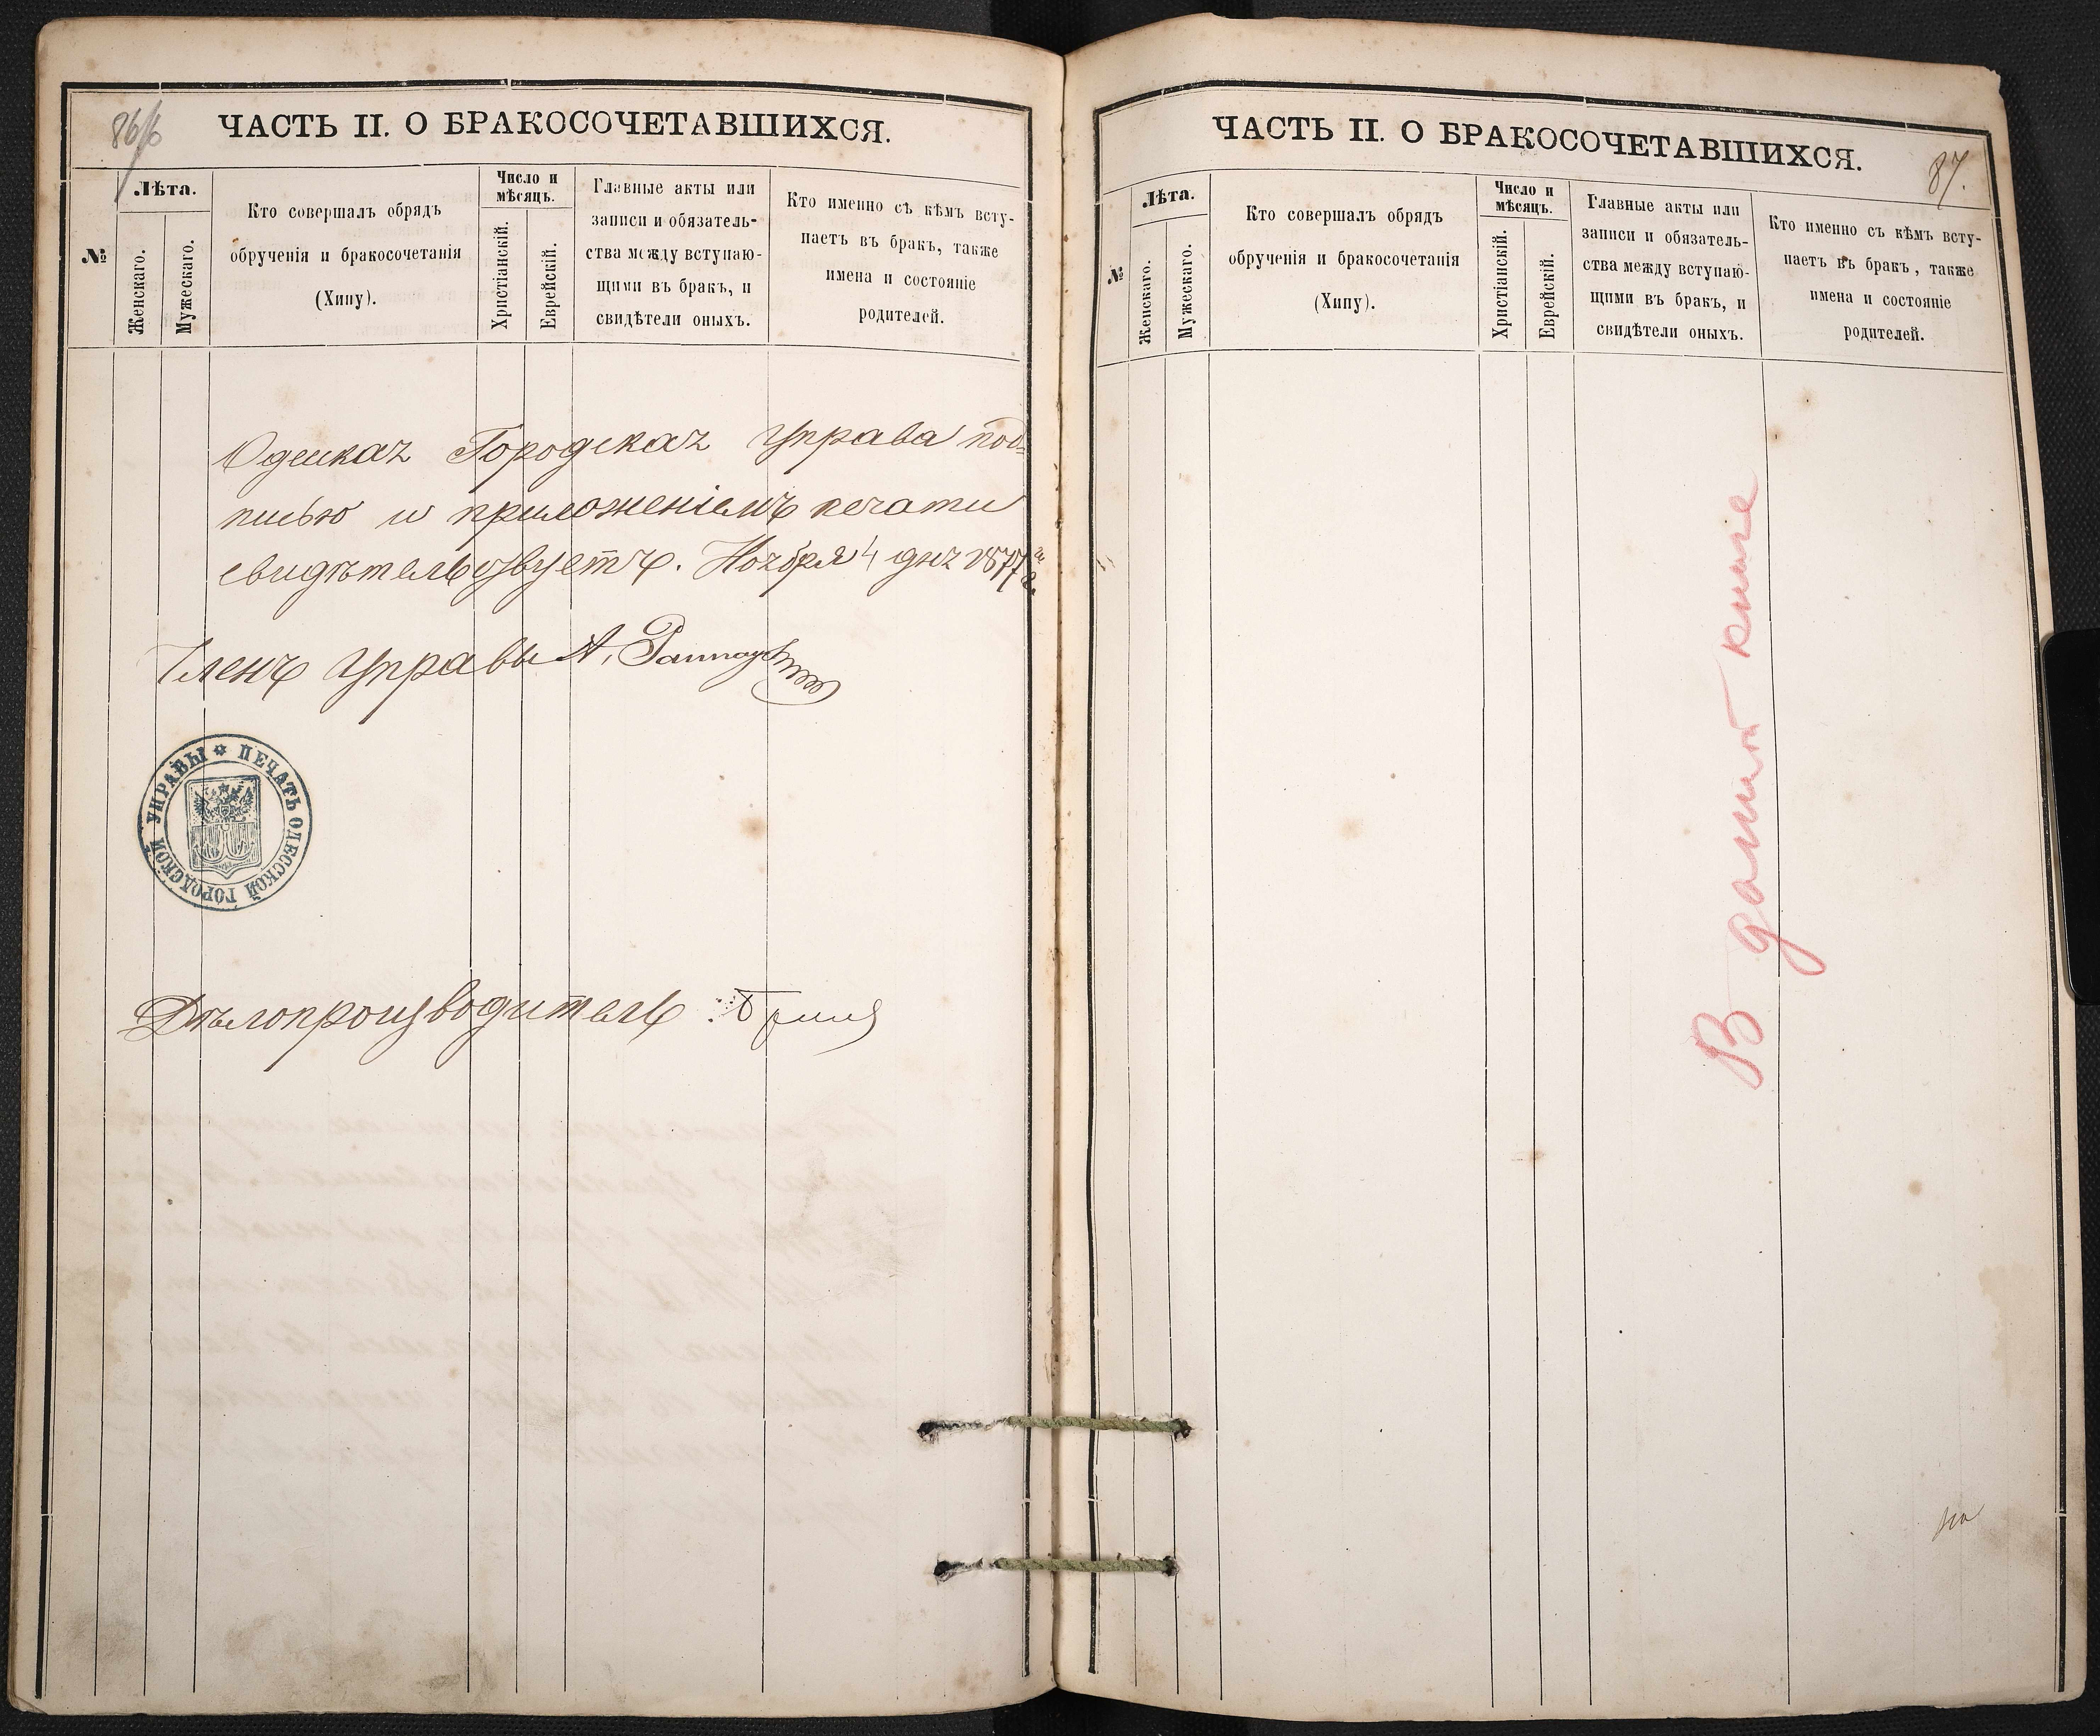 86/б
ЧАСТЬ II. О БРАКОСОЧЕТАВШИХСЯ.
№
Лѣта.
Женскаго.
Мужескаго.
Кто совершалъ обрядъ
обрученія и бракосочетанія
(Хипу).
Число и
мѣсяцъ.
Христіанскій.
Еврейскій.
Главные акты или
записи и обязатель-
ства между вступаю-
щими въ бракъ, и
свидѣтели оныхъ.
Кто именно съ кѣмъ всту-
паетъ въ бракъ, также
имена и состояніе
родителей.
Одесская Городская Управа под-
писью и приложеніемъ печати
свидѣтельствуетъ. Ноября 4 дня 1877 г.
Членъ Управы А.
ПЕЧАТЬ ОДЕССКОЙ ГОРОДСКОЙ УПРАВЫ
Дѣлопроизводитель
ЧАСТЬ II. О БРАКОСОЧЕТАВШИХСЯ.
87.
№
Лѣта.
Женскаго.
Мужескаго.
Кто совершалъ обрядъ
обрученія и бракосочетанія
(Хипу).
Число и
мѣсяцъ.
Христіанскій.
Еврейскій.
Главные акты или
записи и обязатель-
ства между вступаю-
щими въ бракъ, и
свидѣтели оныхъ.
Кто именно съ кѣмъ всту-
паетъ въ бракъ, также
имена и состояніе
родителей.
В данной книге